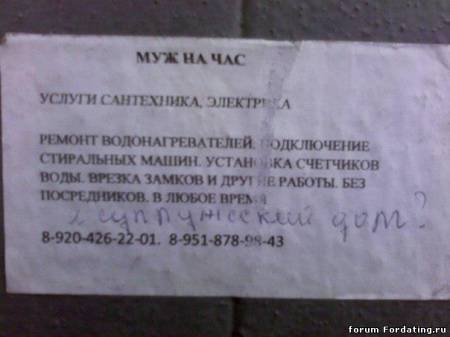 МУЖ НА ЧАС
УСЛУГИ САНТЕХНИКА, ЭЛЕКТРИКА
РЕМОНТ ВОДОНАГРЕВАТЕЛЕЙ. ПОДКЛЮЧЕНИЕ
СТИРАЛЬНЫХ МАШИН. УСТАНОВКА СЧЕТЧИКОВ
ВОДЫ. ВРЕЗКА ЗАМКОВ И ДРУГИЕ РАБОТЫ. БЕЗ
ПОСРЕДНИКОВ. В ЛЮБОЕ ВРЕМЯ
а супружеский долг?
8-920-426-22-01. 8-951-878-98-43
forum Fordating.ru